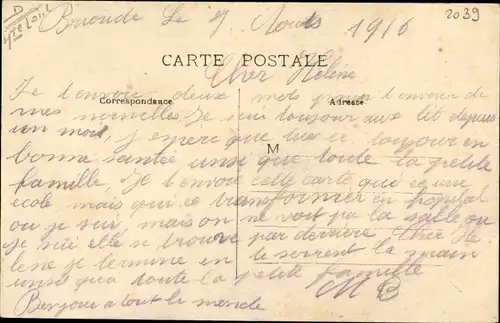 D
Hte Loire
2039
Brioude Le 7 Aouts 1916
CARTE POSTALE
Cher Hélène
Correspondance
Adresse
M
Je t'envoie deux mots pour t'envoier de
mes nouvelles Je suis toujour aux lit depuis
un mois, J espère que tu es toujour en
bonne santée unsi que toute la petite
famille, Je t'envoie cette carte qui ce une
ecole mais qui ce transformer en hopital
ou je suis, mais on ne voit pa la salle ou
Je suis elle se trouve par derriere Chèr He
lene je termine en te serrent la main
unsi qua toute la petite famille
Bonjour a tout le monde
M B